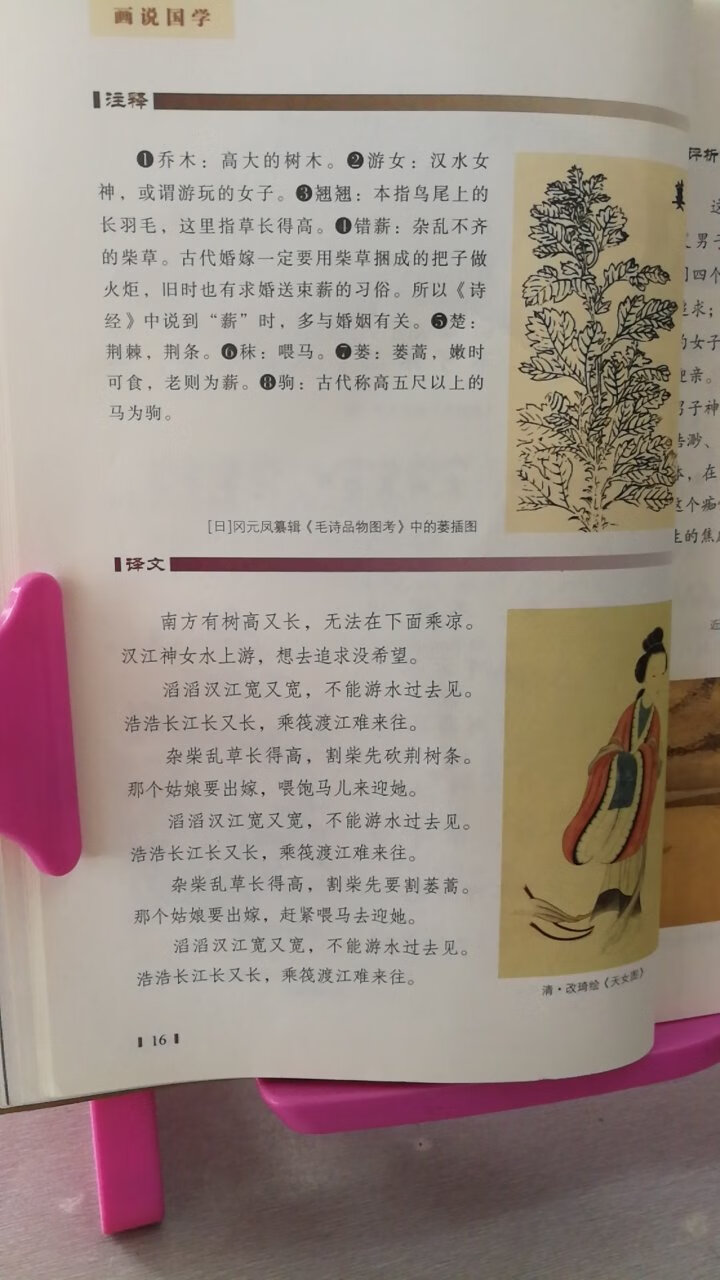 画说国学
注释
❶乔木：高大的树木。❷游女：汉水女
神，或谓游玩的女子。❸翘翘：本指鸟尾上的
长羽毛，这里指草长得高。❹错薪：杂乱不齐
的柴草。古代婚嫁一定要用柴草捆成的把子做
火炬，旧时也有求婚送束薪的习俗。所以《诗
经》中说到“薪”时，多与婚姻有关。❺楚：
荆棘，荆条。❻秣：喂马。❼蒌：蒌蒿，嫩时
可食，老则为薪。❽驹：古代称高五尺以上的
马为驹。
[日]冈元凤纂辑《毛诗品物图考》中的蒌插图
译文
南方有树高又长，无法在下面乘凉。
汉江神女水上游，想去追求没希望。
滔滔汉江宽又宽，不能游水过去见。
浩浩长江长又长，乘筏渡江难来往。
杂柴乱草长得高，割柴先砍荆树条。
那个姑娘要出嫁，喂饱马儿来迎她。
滔滔汉江宽又宽，不能游水过去见。
浩浩长江长又长，乘筏渡江难来往。
杂柴乱草长得高，割柴先要割蒌蒿。
那个姑娘要出嫁，赶紧喂马去迎她。
滔滔汉江宽又宽，不能游水过去见。
浩浩长江长又长，乘筏渡江难来往。
清·改琦绘《天女图》
16
评析
这
男子
四个
求；
的女子
迎亲。
男子神
浩渺、
体，在
这个痴
生的焦
近